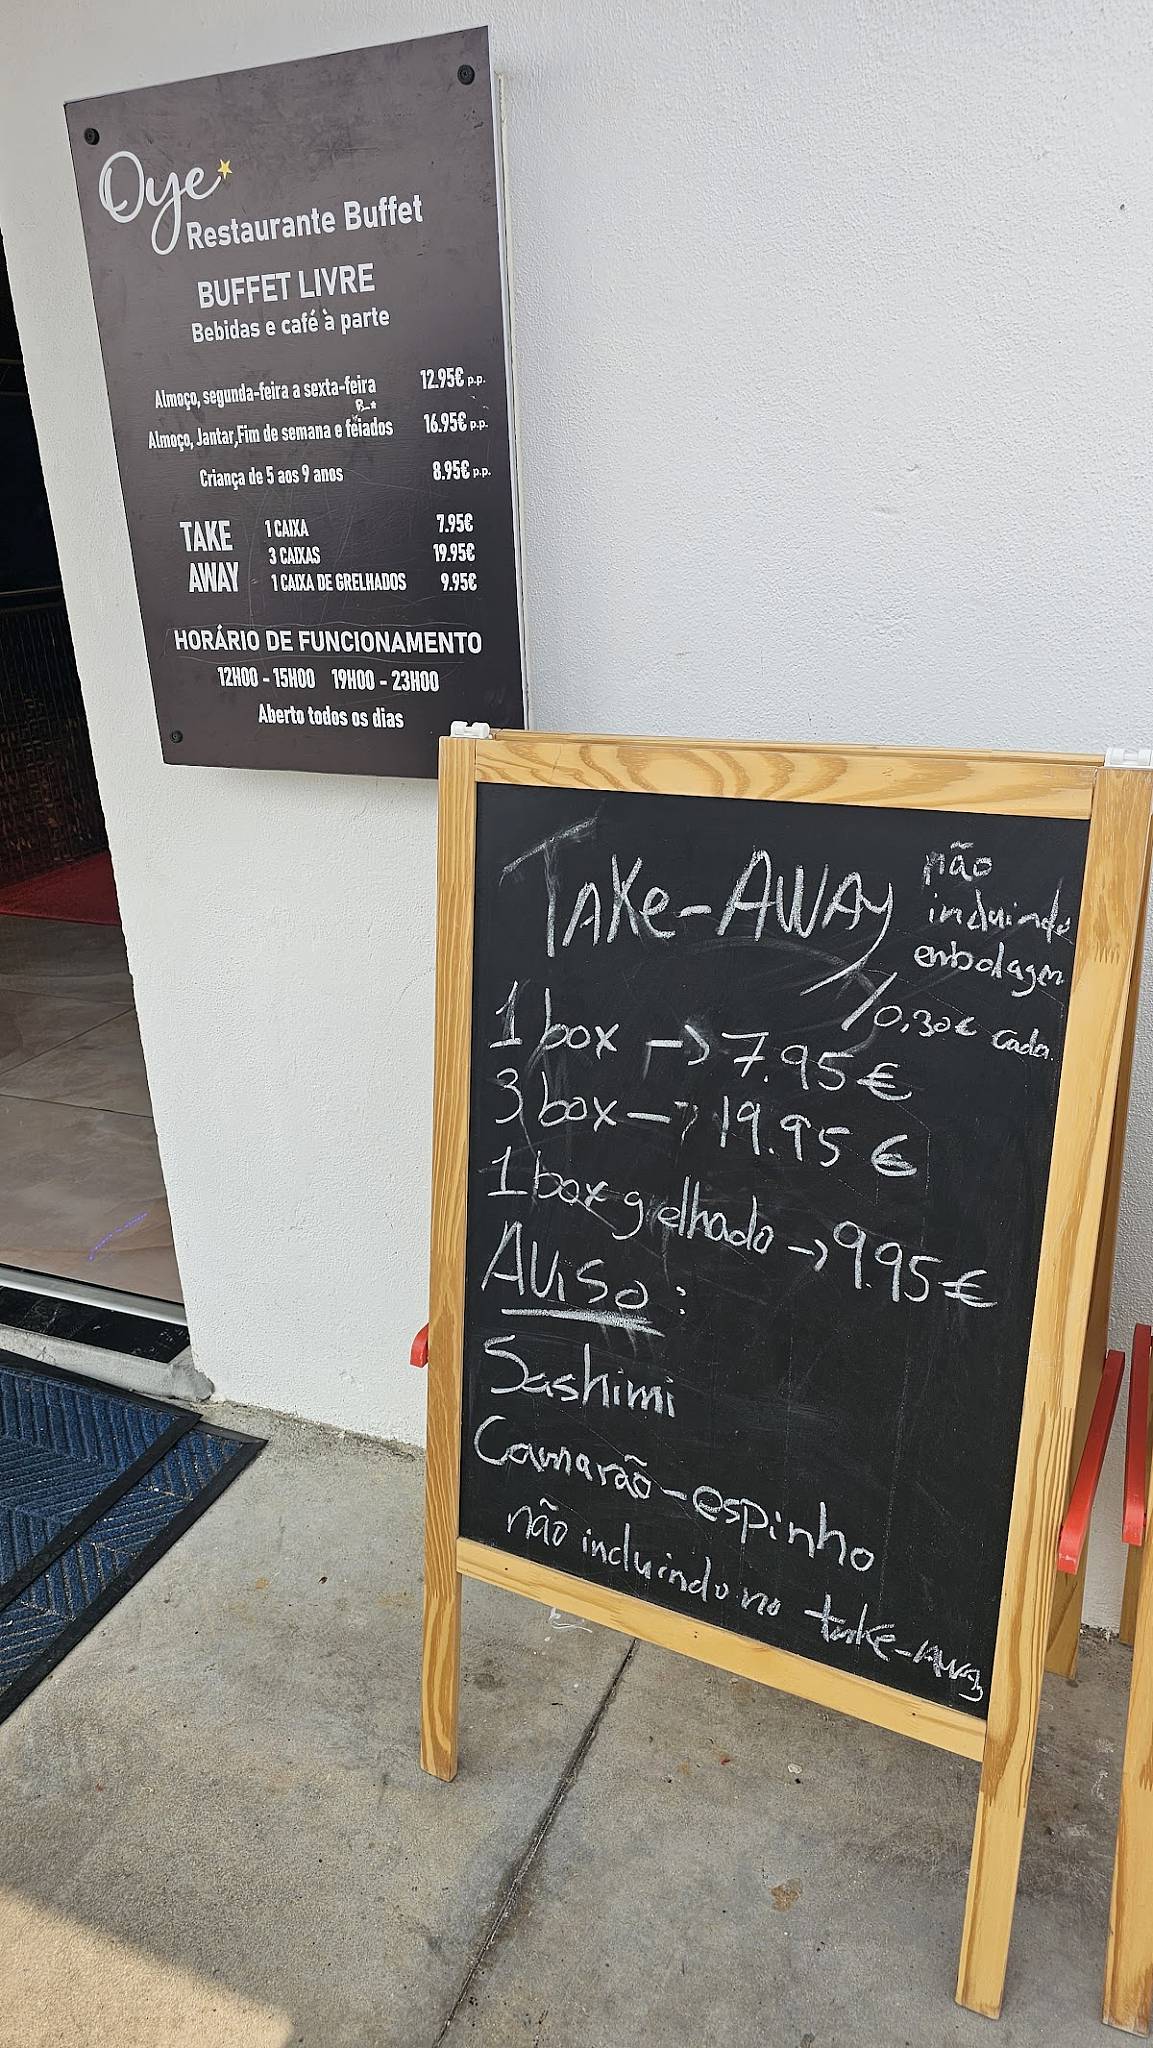 Oye
Restaurante Buffet
BUFFET LIVRE
Bebidas e café à parte
Almoço, segunda-feira a sexta-feira 12.95€ p.p.
Almoço, Jantar,Fim de semana e feiados 16.95€ p.p.
Criança de 5 aos 9 anos 8.95€ p.p.
TAKE AWAY
1 CAIXA 7.95€
3 CAIXAS 19.95€
1 CAIXA DE GRELHADOS 9.95€
HORÁRIO DE FUNCIONAMENTO
12H00 - 15H00 19H00 - 23H00
Aberto todos os dias
TAKe-AWAY
não
incluindo
embolagem
/0,30€ cada.
1 box -> 7.95€
3 box -> 19.95€
1 box grelhado -> 9.95€
Aviso:
Sashimi
Camarão-espinho
não incluindo no take-AWay